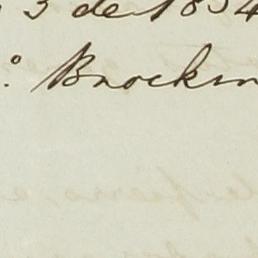 3 de 1854
Brockm